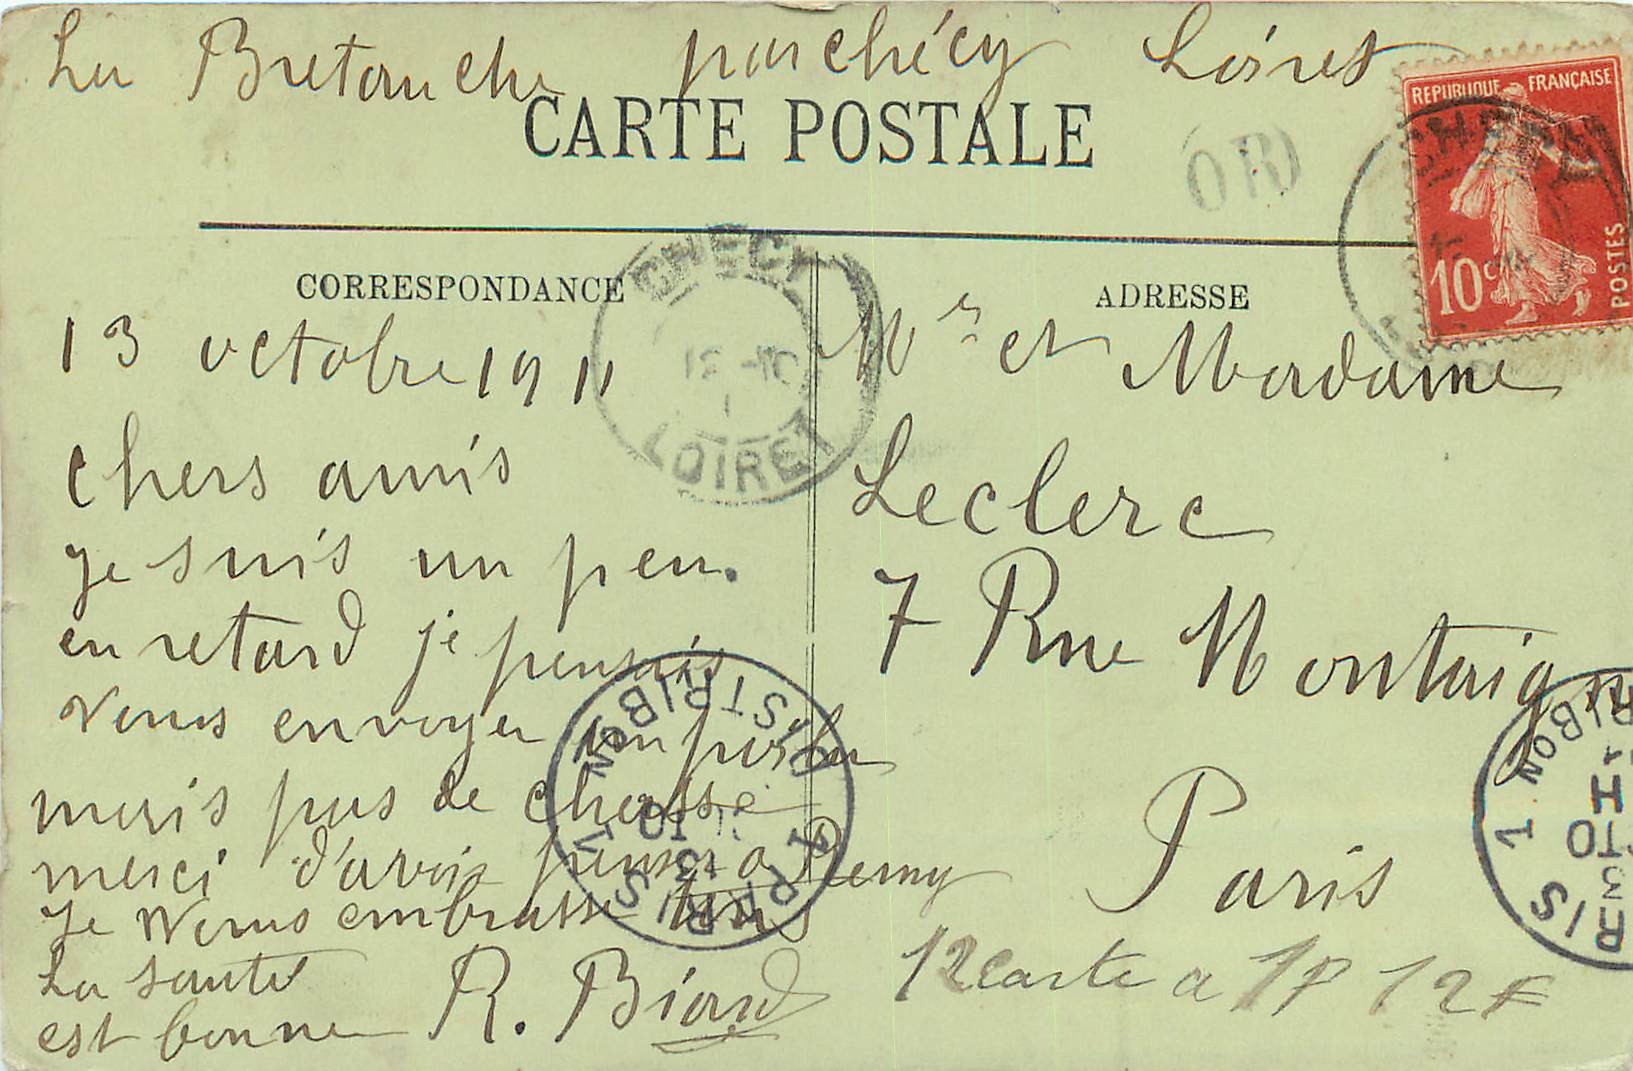 La Bretauche par chécy Loiret
CARTE POSTALE
OR
REPUBLIQUE FRANÇAISE
10c POSTES
CORRESPONDANCE
ADRESSE
CHECY
12 -10
LOIRET
13 octobre 1911
chers amis
je suis un peu.
en retard je pensais
vous envoyer un
mais pas de chasse
merci d'avoir penser a Remy
Je vous embrasse tous
La santé
est bonne R. Biard
Mr et Madame
Leclerc
7 Rue Montaign
Paris
12 carte a 1F 12F
PARIS 1 DISTRIBON
13
10
RIS 1
RIBON